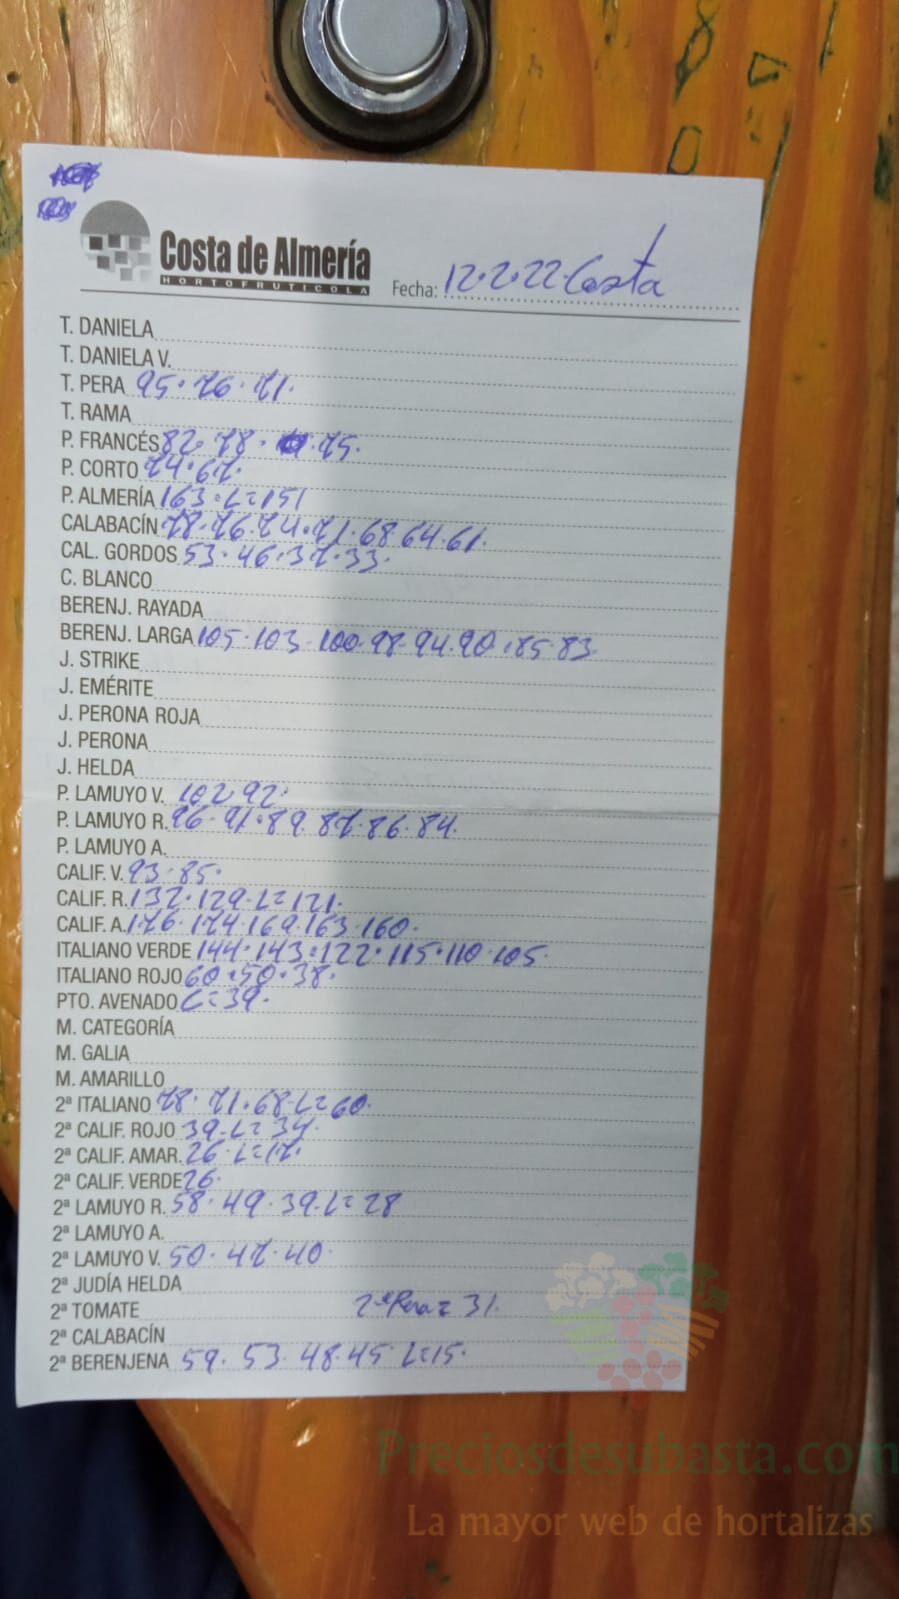 Costa de Almería
HORTOFRUTICOLA
Fecha: 12.2.22.Costa
T. DANIELA
T. DANIELA V.
T. PERA 95.76.71.
T. RAMA
P. FRANCÉS 82.78. 75.
P. CORTO 74.67.
P. ALMERÍA 163.L=151
CALABACÍN 78.76.74.71.68.64.61.
CAL. GORDOS 53.46.37.33.
C. BLANCO
BERENJ. RAYADA
BERENJ. LARGA 105.103.100.98.94.90.85.83.
J. STRIKE
J. EMÉRITE
J. PERONA ROJA
J. PERONA
J. HELDA
P. LAMUYO V. 102.92.
P. LAMUYO R. 96.91.89.87.86.84.
P. LAMUYO A.
CALIF. V. 93.85.
CALIF. R. 132.129.L=121.
CALIF. A. 176.174.169.163.160.
ITALIANO VERDE 144.143.122.115.110.105.
ITALIANO ROJO 60.50.38.
PTO. AVENADO L=39.
M. CATEGORÍA
M. GALIA
M. AMARILLO
2ª ITALIANO 78.71.68.L=60.
2ª CALIF. ROJO 39.L=34.
2ª CALIF. AMAR. 26.L=17.
2ª CALIF. VERDE 26.
2ª LAMUYO R. 58.49.39.L=28
2ª LAMUYO A.
2ª LAMUYO V. 50.47.40.
2ª JUDÍA HELDA
2ª TOMATE 2ª Pera=31.
2ª CALABACÍN
2ª BERENJENA 59.53.48.45.L=15.
Preciosdesubasta.com
La mayor web de hortalizas